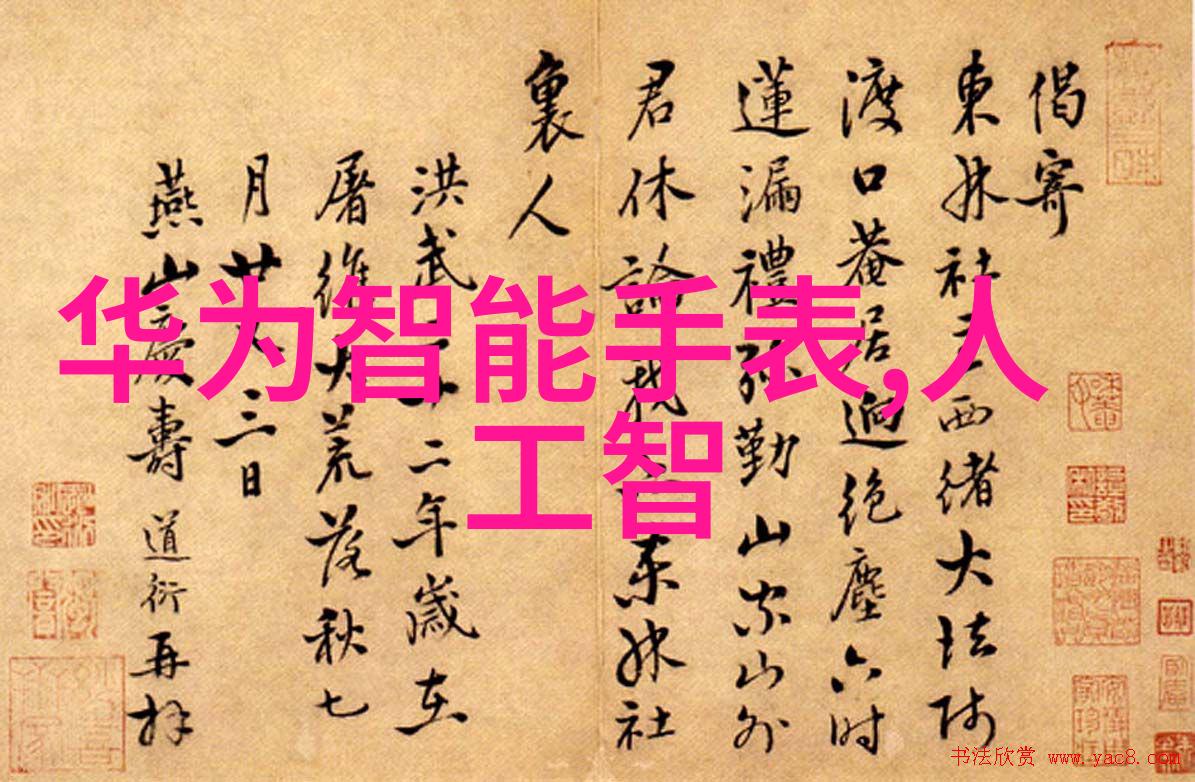 华为智能手表,人
工智
偈寄
東林社主西緒大法师
渡口菴居迥絕塵六时
蓮漏禮弥勤山家山外
君休論我東林社
裏人
洪武十二年歲在
屠維大荒落秋七
月廿又三日
燕山慶壽道衍再拜
书法欣赏 www.yac8.com